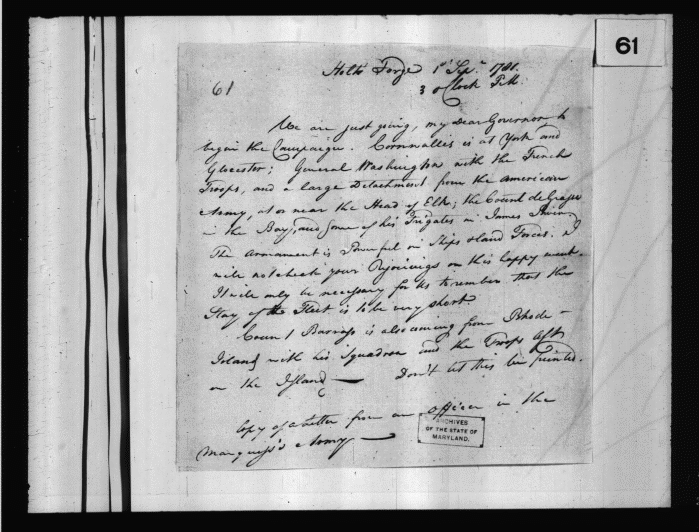 61
61
Holts Forge 1st Sepr 1781.
3 oClock P.M.
We are just going, my dear Governor to
begin the Campaign. Cornwallis is at York and
Glocester; General Washington with the French
Troops, and a large Detachment from the American
Army, at or near the Head of Elk; the Count de Grasse
in the Bay, and some of his Frigates in James River
The Armament is Powerful in Ships & Land Forces. I
will not check your Rejoicings on this happy event.
It will only be necessary for us to remember that the
Stay of the Fleet is to be very short.
Count Barrass is also coming from Rhode-
Island with his Squadron and the Troops left
on the Island — Don't let this be printed.
Copy of a letter from an officer in the
Marquiss's Army —
ARCHIVES
OF THE STATE OF
MARYLAND.